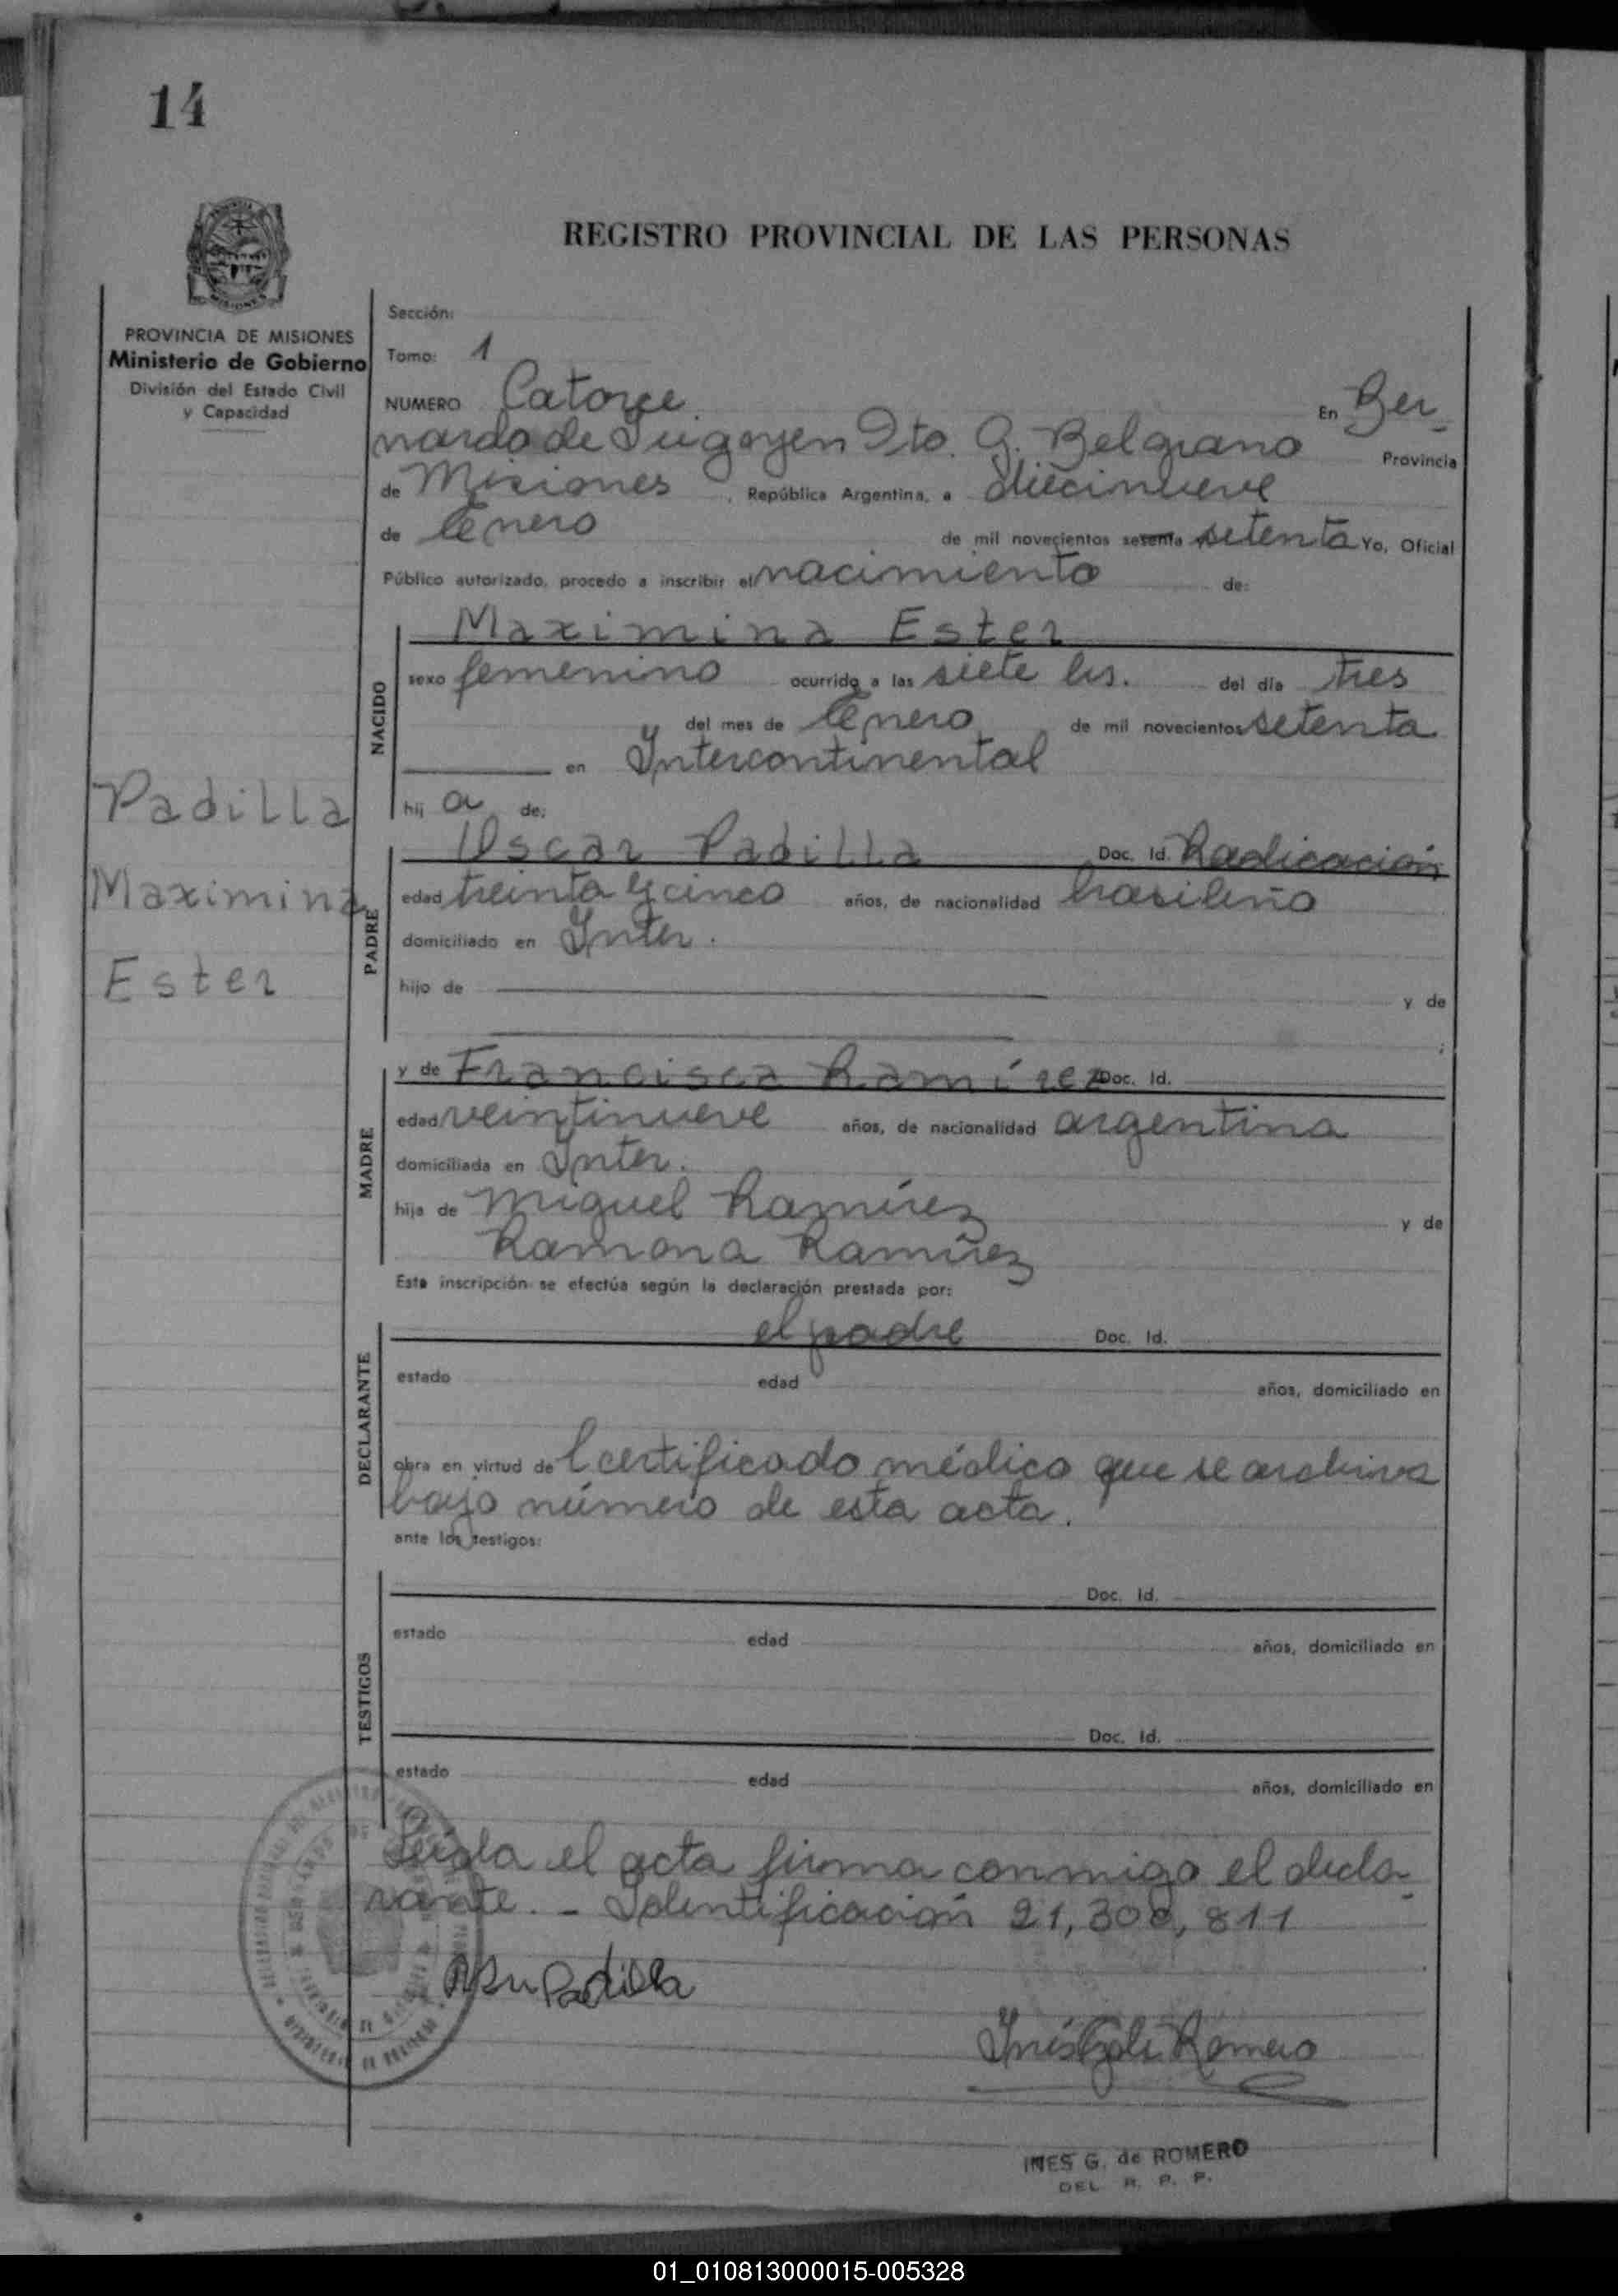 14
REGISTRO PROVINCIAL DE LAS PERSONAS
PROVINCIA DE MISIONES
Ministerio de Gobierno
División del Estado Civil
y Capacidad
Sección:
Tomo: 1
NUMERO Catorce. En Ber
nardo de Irigoyen Dto. G. Belgrano Provincia
de Misiones, República Argentina, a diecinueve
de Enero de mil novecientos sesenta setenta Yo, Oficial
Público autorizado, procedo a inscribir el nacimiento de:
NACIDO
Maximina Ester
sexo femenino ocurrido a las siete hs. del día tres
del mes de Enero de mil novecientos setenta
en Intercontinental
hij a de:
Padilla
Maximina
Ester
PADRE
Oscar Padilla Doc. Id. Radicación
edad treinta y cinco años, de nacionalidad brasileño
domiciliado en Inter.
hijo de y de
MADRE
y de Francisca Ramírez Doc. Id.
edad veintinueve años, de nacionalidad argentina
domiciliada en Inter.
hija de Miguel Ramírez y de
Ramona Ramírez
Esta inscripción se efectúa según la declaración prestada por:
DECLARANTE
el padre Doc. Id.
estado edad años, domiciliado en
obra en virtud de l certificado médico que se archiva
bajo número de esta acta.
ante los testigos:
TESTIGOS
Doc. Id.
estado edad años, domiciliado en
Doc. Id.
estado edad años, domiciliado en
Leída el acta firma conmigo el decla-
rante. - Identificación 21,300,811
Padilla
Romero
INES G. de ROMERO
DEL. R. P. P.
01_010813000015-005328